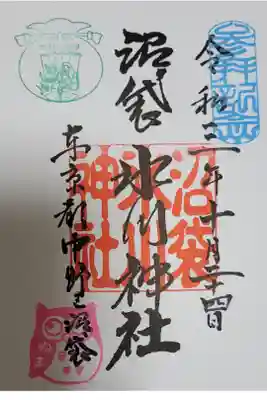 参拝記念
令和三年十月二十四日
沼袋
氷川神社
沼袋氷川神社
東京都中野区沼袋